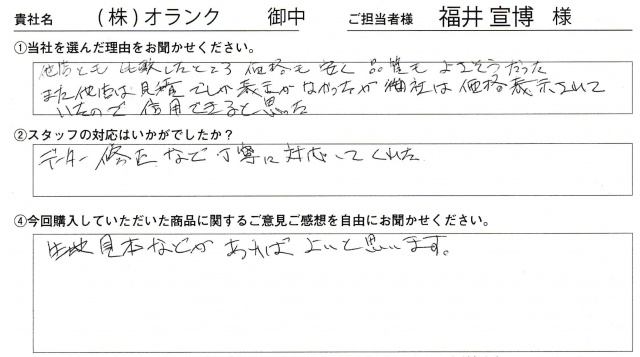 貴社名 (株)オランク 御中 ご担当者様 福井 宣博 様
①当社を選んだ理由をお聞かせください。
他店とも比較したところ価格も安く品質もよさそうだった
また他店は見積でしか表示がなかったが御社は価格表示されて
いたので信用できると思った
②スタッフの対応はいかがでしたか?
データー修正など丁寧に対応してくれた
④今回購入していただいた商品に関するご意見ご感想を自由にお聞かせください。
生地見本などがあればよいと思います。